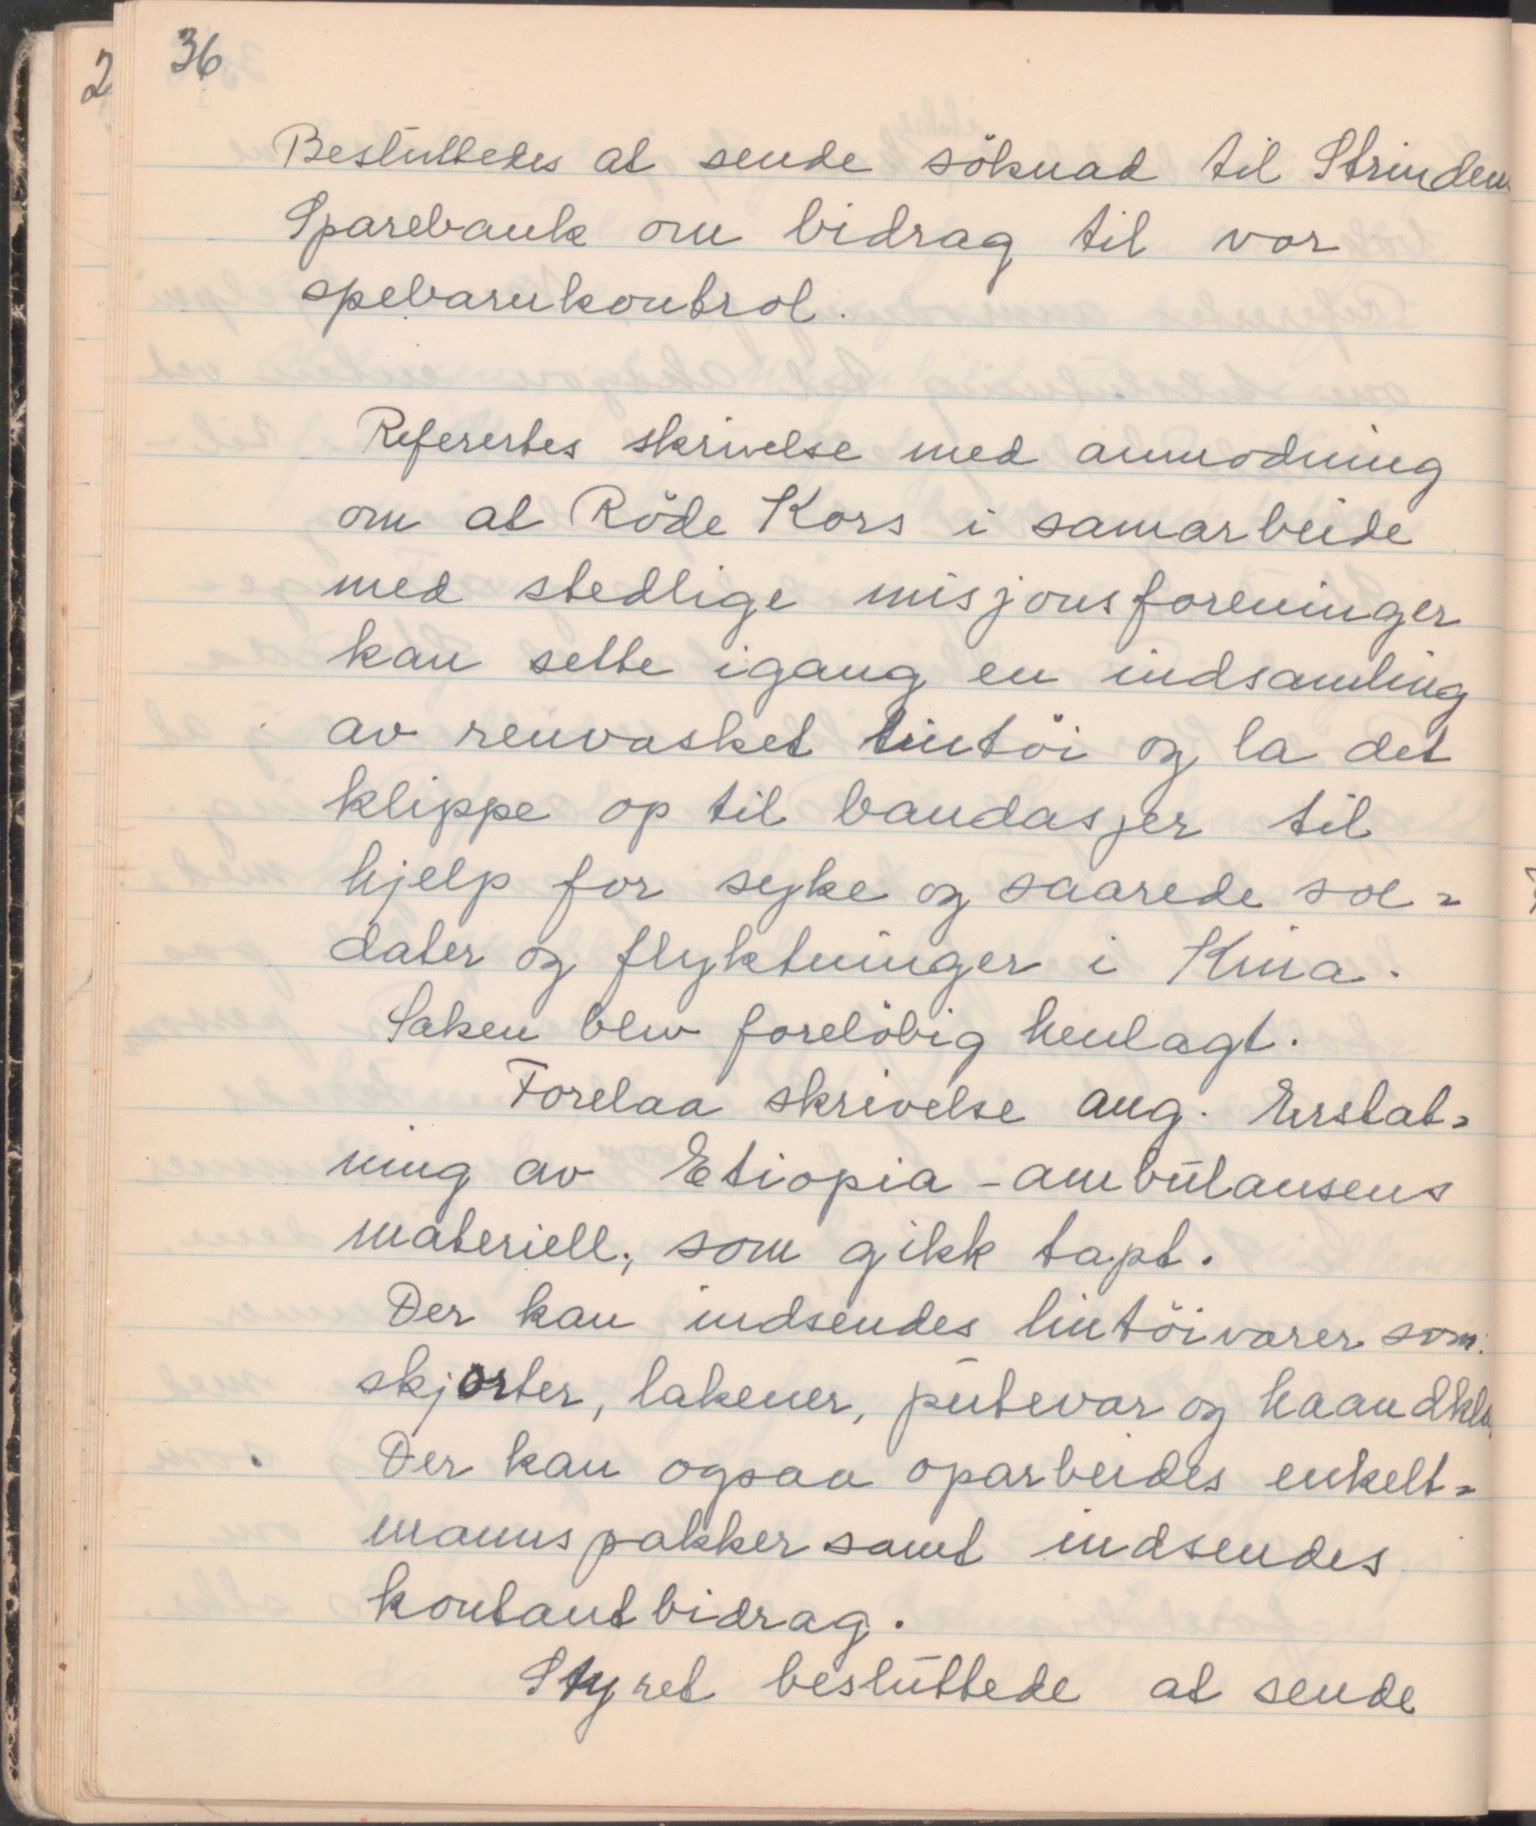 36
Besluttedes at sende söknad til Strinden
Sparebank om bidrag til vor
spebarnkontrol.
Referertes skrivelse med anmodning
om at Röde Kors i samarbeide
med stedlige misjonsforeninger
kan sette igang en indsamling
av renvasket lintöi og la det
klippe op til bandasjer til
hjelp for syke og saarede sol=
dater og flyktninger i Kina.
Saken blev forelöbig henlagt.
Forelaa skrivelse ang. Erstat=
ning av Etiopia-ambulansens
materiell, som gikk tapt.
Der kan indsendes lintöivarer som:
skjorter, lakener, putevar og haandkl
Der kan ogsaa oparbeides enkelt=
mannspakker samt indsendes
kontantbidrag.
Styret besluttede at sende